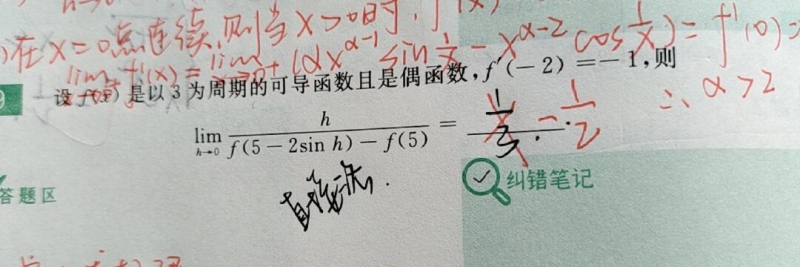 在x=0点连续,则当x>0时,f'(x)
lim f'(x)=lim (αx^{α-1} sin 1/x - x^{α-2} cos 1/x)=f'(0)=
设f(x)是以3为周期的可导函数且是偶函数,f′(-2)=-1,则
∴α>2
lim_{h→0} h/(f(5-2sin h)-f(5))= -1/2.
答题区
纠错笔记